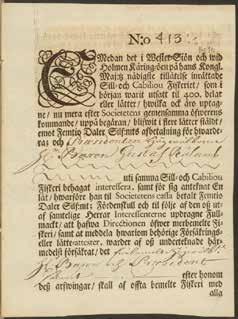 N:o 413½.
EMedan det i Wester-Siön och wid
Holmen Käring-öen på hans Kongl.
Maj:tz nådigste tillåtelse inrättade
Sill- och Cabiliou Fiskeriet, som i
början warit utsatt til 400. delar
eller låtter, hwilka ock äro uptag-
ne, nu mera efter Societetens gemensamma öfwerens-
kommande, uppå begäran, blifwit i flere låtter fält,
emot Femtio Daler Silf:mts afbetalning för hwarde-
ra; och Præsidenten
H. Baron Gustaf
uti samma Sill- och Cabiliou
Fiskeri behagat interessera, samt för sig antecknat En
låt, hwarföre han til Societetens cassa betalt Femtio
Daler Silf:mt; Fördenskull och til följe af den oss ut-
af samtelige Herrar Interessenterne updragne Full-
mackt, att hafwa Directionen öfwer merbemelte Fi-
skeri, samt at meddela hwariom behörige Försäkrings-
eller låtte-attester, warder af oss undertecknade här-
medelst försäkrat, det
H. Baron och President
efter honom
deß arfwingar, skall af offta bemelte Fiskeri med
alla